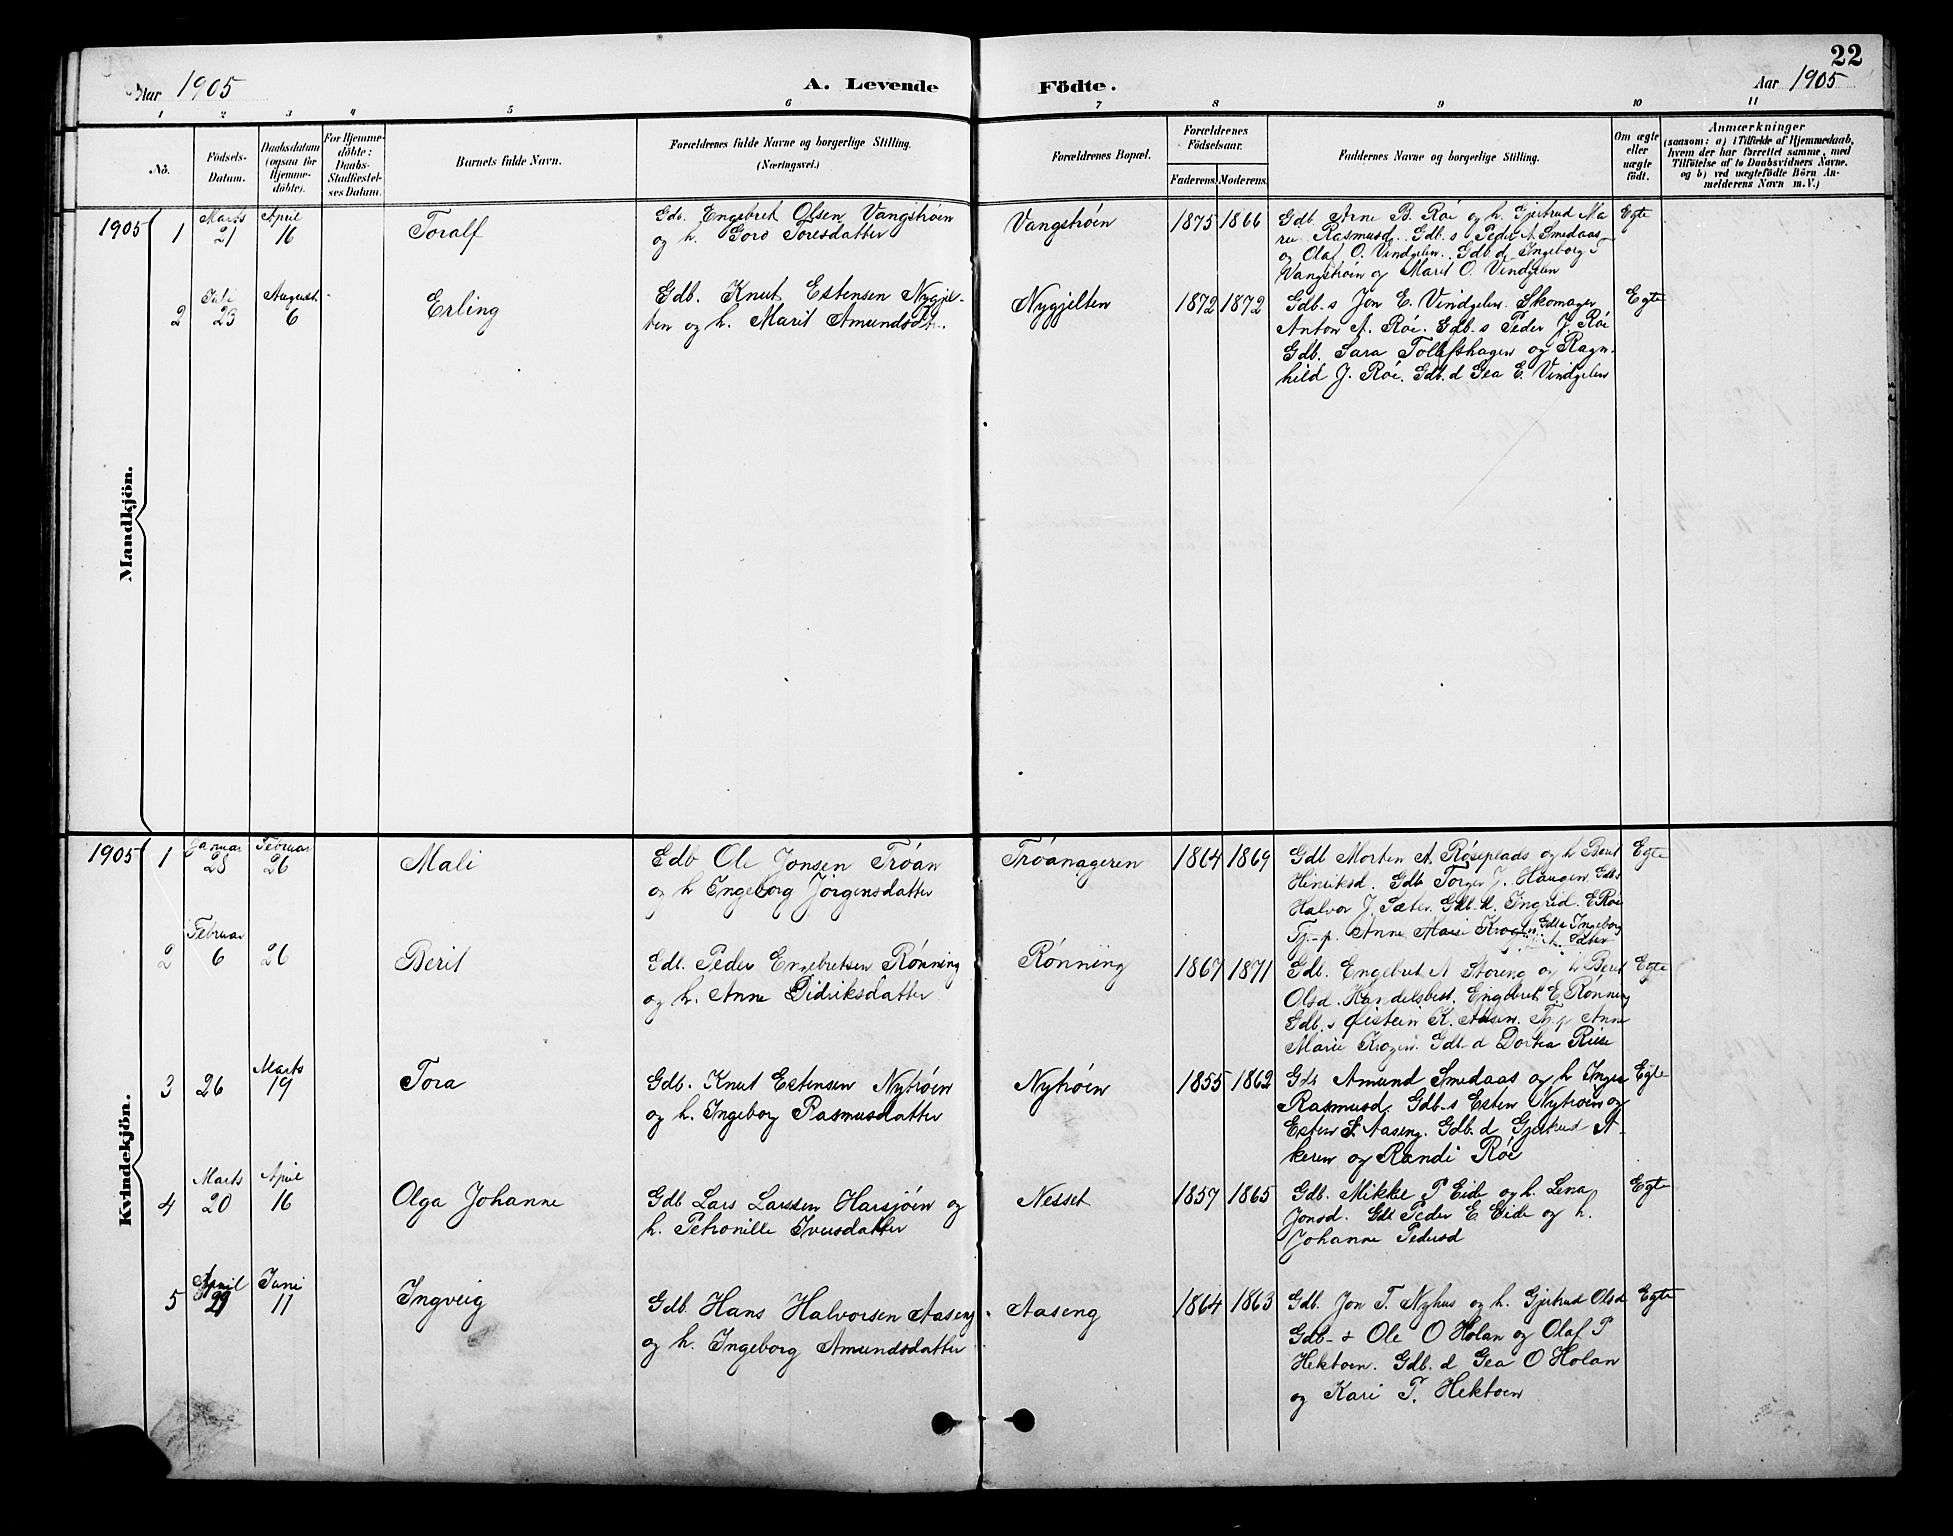 22
Aar 1905
A. Levende
Födte.
Aar 1905
1 2 3 4 5 6 7 8 9 10 11
No.
Födsels-
Datum.
Daabsdatum
(ogsaa for
Hjemme-
döbte).
For Hjemme-
döbte:
Daabs-
Stadfæstel-
ses Datum.
Barnets fulde Navn.
Forældrenes fulde Navne og borgerlige Stilling.
(Næringsvei.)
Forældrenes Bopæl.
Forældrenes
Födselsaar.
Faderens. Moderens.
Faddernes Navne og borgerlige Stilling.
Om ægte
eller
uægte
födt.
Anmærkninger
(saasom: a) i Tilfælde af Hjemmedaab,
hvem der har forrettet samme, med
Tilföielse af to Daabsvidners Navne,
og b) ved uægtefödte Börn An-
melderens Navn m. V.)
Mandkjön.
1905
1
Marts
21
April
16
Toralf
Gdb. Engebret Olsen Vangstrøen
og h. Goro Toresdatter
Vangstrøen
1875
1866
Gdb. Arne B. Røe og h. Gjertrud Ma-
rie Rasmusd. Gdb. s Peder A. Smedaas
og Olaf O. Vindgelen. Gdb d. Ingeborg T
Vangstrøen og Marit O. Vindgelen
Egte
2
Juli
23
August
6
Erling
Gdb. Knut Estensen Nygjel-
ten og h. Marit Amundsdtr.
Nygjelten
1872
1872
Gdb. s Jon E. Vindgelen. Skomager
Anton A. Røe. Gdb. s Peder J. Røe
Gdb. Sara Tollefshagen og Ragn-
hild J. Røe. Gdb. d Gea E. Vindgelen
Egte
Kvindekjön.
1905
1
Januar
28
Februar
26
Mali
Gdb Ole Jonsen Trøan
og h Ingeborg Jørgensdatter
Trøanageren
1864
1869
Gdb Morten A. Røseplads og h Berit
Henriksd. Gdb Torger J. Haugen. Gdb s
Halvor J. Sæter. Gdb. d. Ingrid E Røe
Tj.-p. Anne Marie Krogen. Gdb d Ingeborg
Egte
2
Februar
6
26
Berit
Gdb. Peder Engebretsen Rønning
og h. Anne Didriksdatter
Rønning
1867
1871
Gdb. Engebret A Storeng og h Berit
Olsd. Handelsbest. Engebret E. Rønning
Gdb. s Øistein K. Tj. p Anne
Marie Krogen. Gdb. d Dortea Riise
Egte
3
26
Marts
19
Tora
Gdb. Knut Estensen Nytrøen
og h. Ingeborg Rasmusdatter
Nytrøen
1855
1862
Gdb Amund Smedaas og h Inger
Rasmusd. Gdb. s Esten Nytrøen og
Esten S. Aaseng. Gdb. d Gjertrud A-
keren og Randi Røe
Egte
4
Marts
20
April
16
Olga Johanne
Gdb Lars Larssen Harsjøen og
h. Petronille Iversdatter
Nesset
1857
1865
Gdb. Mikkel P Eide og h. Lena
Jonsd. Gdb Peder E. Eide og h.
Johanne Pedersd
Egte
5
April
29
Juni
11
Ingveig
Gdb. Hans Halvorsen Aaseng
og h. Ingeborg Amundsdatter
Aaseng
1864
1863
Gdb. Jon T. Nyhus og h. Gjertrud Olsd
Gdb- s Ole O Holan og Olaf P
Hektoen. Gdb. d Gea O Holan
og Kari P. Hektoen
Egte